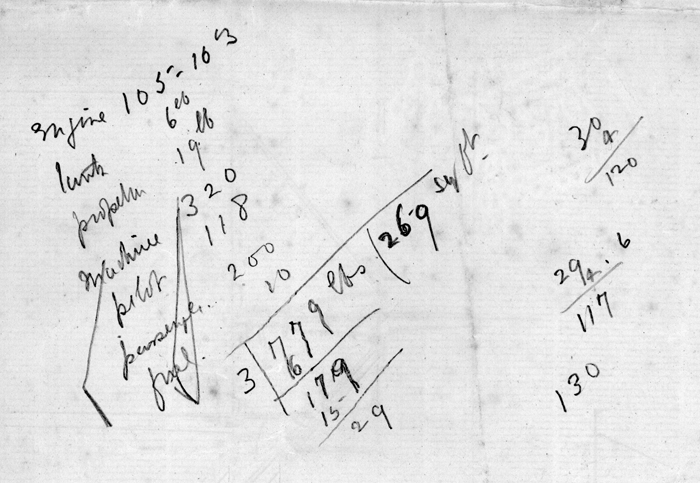 Engine 105-10 oz
6 lb
propeller 19 lb
Machine 320
pilot 118
passenger 200
fuel 10
3 779 lbs (26.9 sq ft.
6
179
15
29
30
4
120
29.6
4
117
130